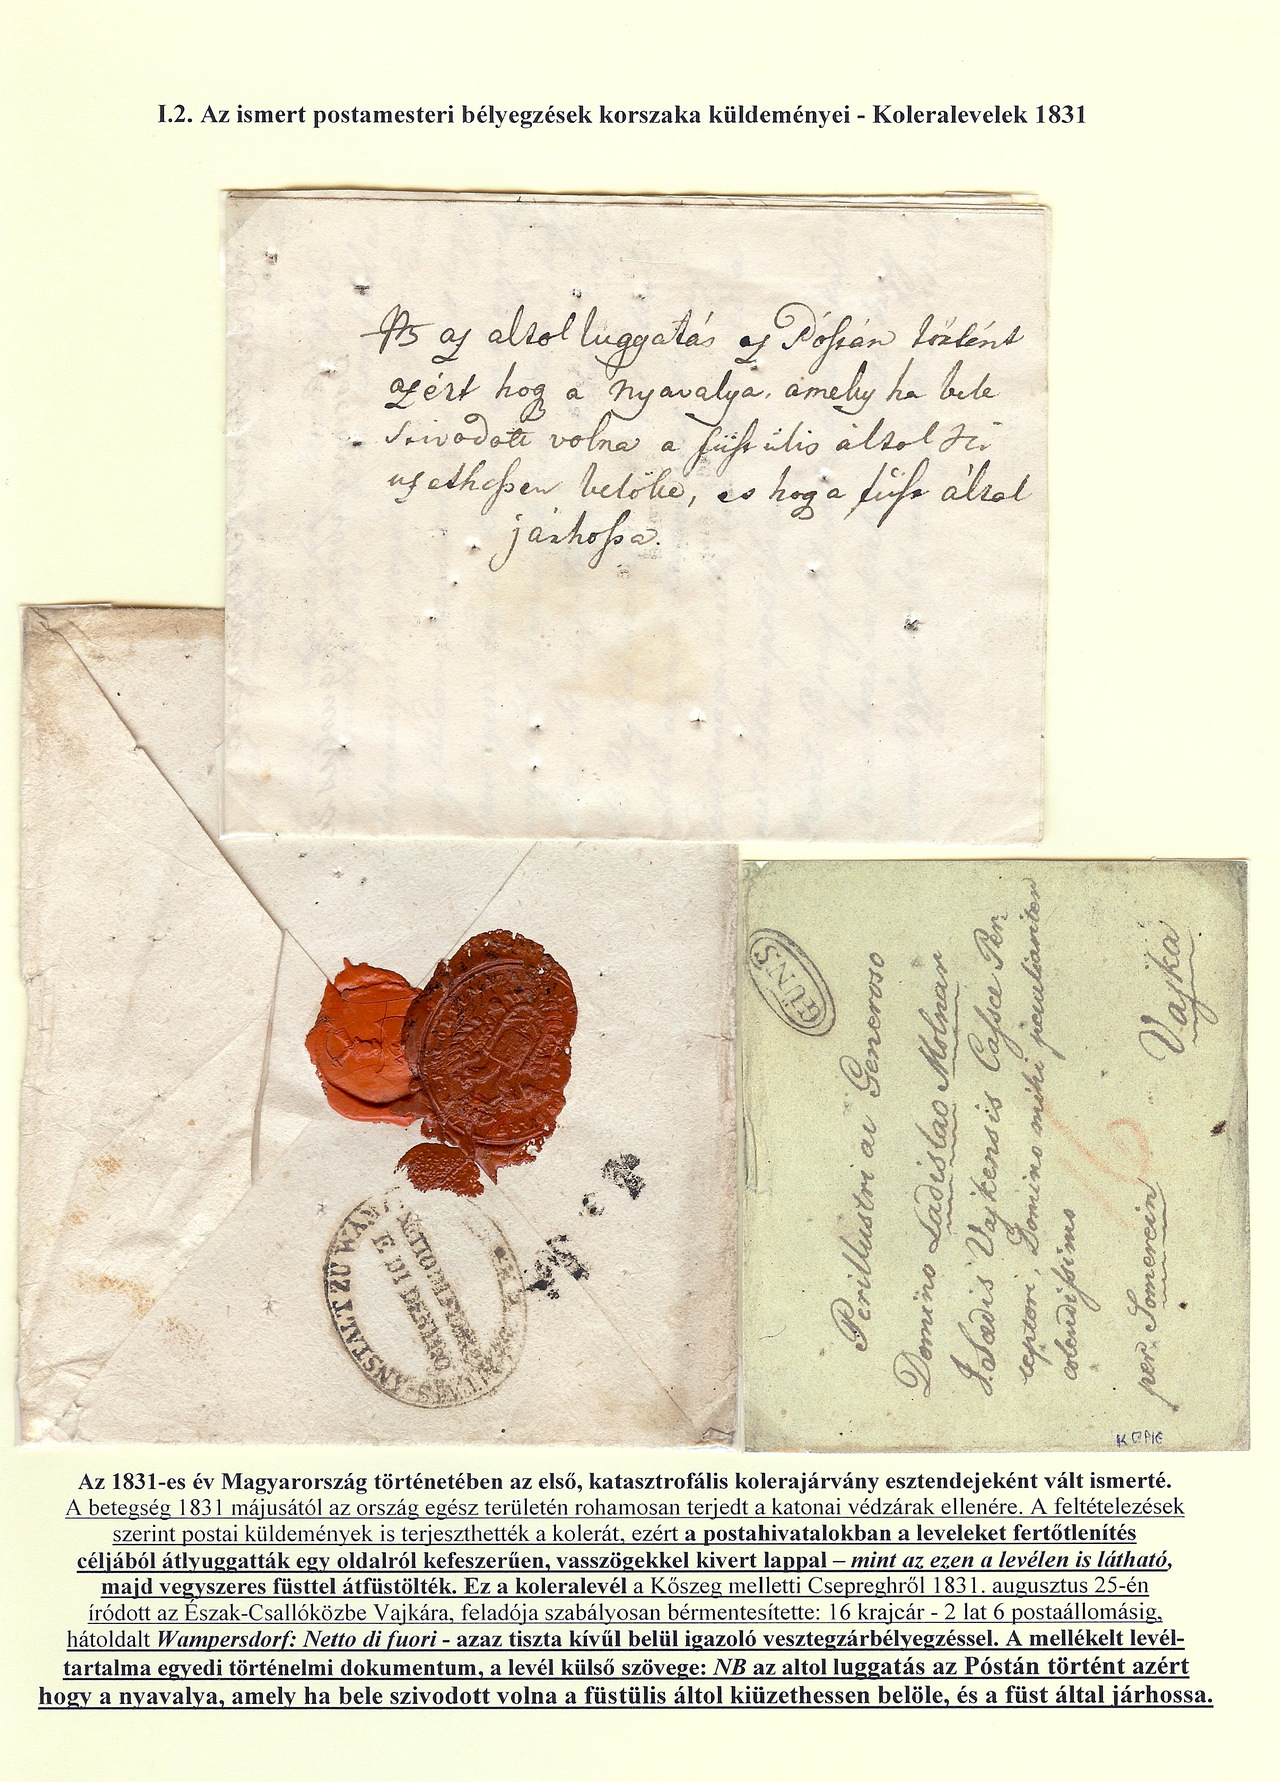 I.2. Az ismert postamesteri bélyegzések korszaka küldeményei - Koleralevelek 1831
NB az altol luggatás az Póstán történt
azért hog a nyavalya, amely ha bele
szivodott volna a füstülis áltol ki
uzethessen belöle, es hog a füst által
járhossa.
ANSTALT ZU WAM
E DI DENTRO
GÜNS
Perillustri ac Generoso
Domino Ladislao Molnar
I. Sedis Vajkensis Cassae Per-
ceptori, Domino mihi peculiariter
colendissimo
per Somerein Vajka
KOPIE
Az 1831-es év Magyarország történetében az első, katasztrofális kolerajárvány esztendejeként vált ismerté.
A betegség 1831 májusától az ország egész területén rohamosan terjedt a katonai védzárak ellenére. A feltételezések
szerint postai küldemények is terjeszthették a kolerát, ezért a postahivatalokban a leveleket fertőtlenítés
céljából átlyuggatták egy oldalról kefeszerűen, vasszögekkel kivert lappal – mint az ezen a levélen is látható,
majd vegyszeres füsttel átfüstölték. Ez a koleralevél a Kőszeg melletti Csepreghről 1831. augusztus 25-én
íródott az Észak-Csallóközbe Vajkára, feladója szabályosan bérmentesítette: 16 krajcár - 2 lat 6 postaállomásig,
hátoldalt Wampersdorf: Netto di fuori - azaz tiszta kívűl belül igazoló vesztegzárbélyegzéssel. A mellékelt levél-
tartalma egyedi történelmi dokumentum, a levél külső szövege: NB az altol luggatás az Póstán történt azért
hogy a nyavalya, amely ha bele szivodott volna a füstülis áltol kiüzethessen belöle, és a füst által járhossa.